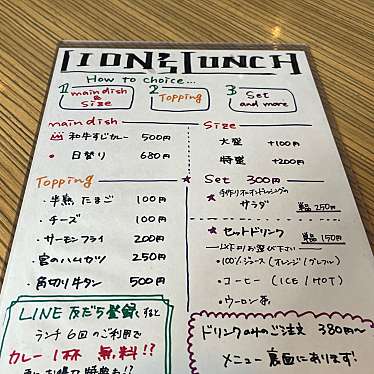 LION'S LUNCH
How to choice...
1 main dish & Size
2 Topping
3 Set and more
main dish
和牛すじカレー 500円
・日替り 680円
Size
大盛 +100円
特盛 +200円
Topping
・半熟たまご 100円
・チーズ 100円
・サーモンフライ 200円
・宮のハムカツ 250円
・角切り牛タン 500円
★ Set 300円
サラダ 単品250円
★ セットドリンク 単品150円
以下よりお選び下さい
・100%ジュース(オレンジ/グレフル)
・コーヒー (ICE / HOT)
・ウーロン茶
LINE 友だち登録すると
ランチ6回のご利用で
カレー1杯 無料!?
ドリンクのみのご注文 380円~
メニュー裏面にあります!